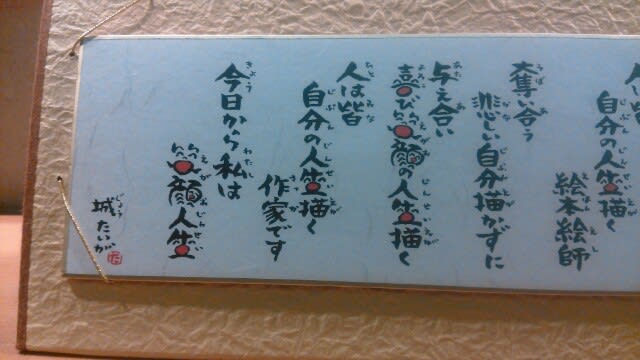 自分の人生描く
絵本絵師
奪い合う
悲しい自分描かずに
与え合い
喜び笑顔の人生描く
人は皆
自分の人生描く
作家です
今日から私は
笑顔人生
城たいが